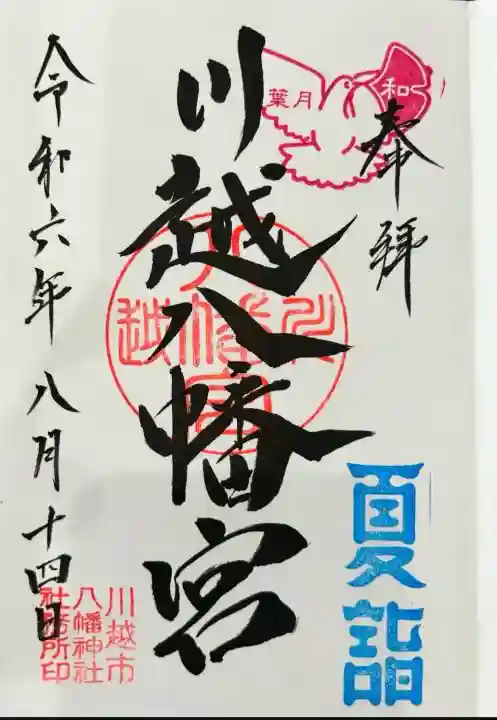 奉拝
和
葉月
川越八幡宮
川越八幡宮
夏詣
令和六年八月十四日
川越市
八幡神社
社務所印